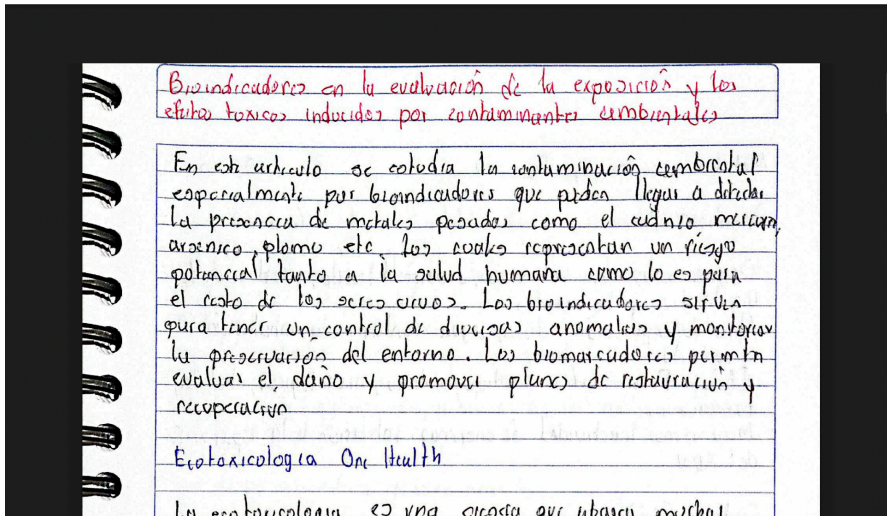 Bioindicadores en la evaluación de la exposición y los
efectos toxicos inducidos por contaminantes ambientales
En este articulo se estudia la contaminación ambiental
especialmente por bioindicadores que pueden llegar a detectar
la presencia de metales pesados como el cadmio mercurio,
arsenico, plomo etc, los cuales representan un riesgo
potencial tanto a la salud humana como lo es para
el resto de los seres vivos. Los bioindicadores sirven
para tener un control de diversas anomalias y monitorear
la preservación del entorno. Los biomarcadores permiten
evaluar el daño y promover planes de restauración y
recuperación
Ecotoxicologia One Health
La ecotoxicologia es una ciencia que abarca muchas